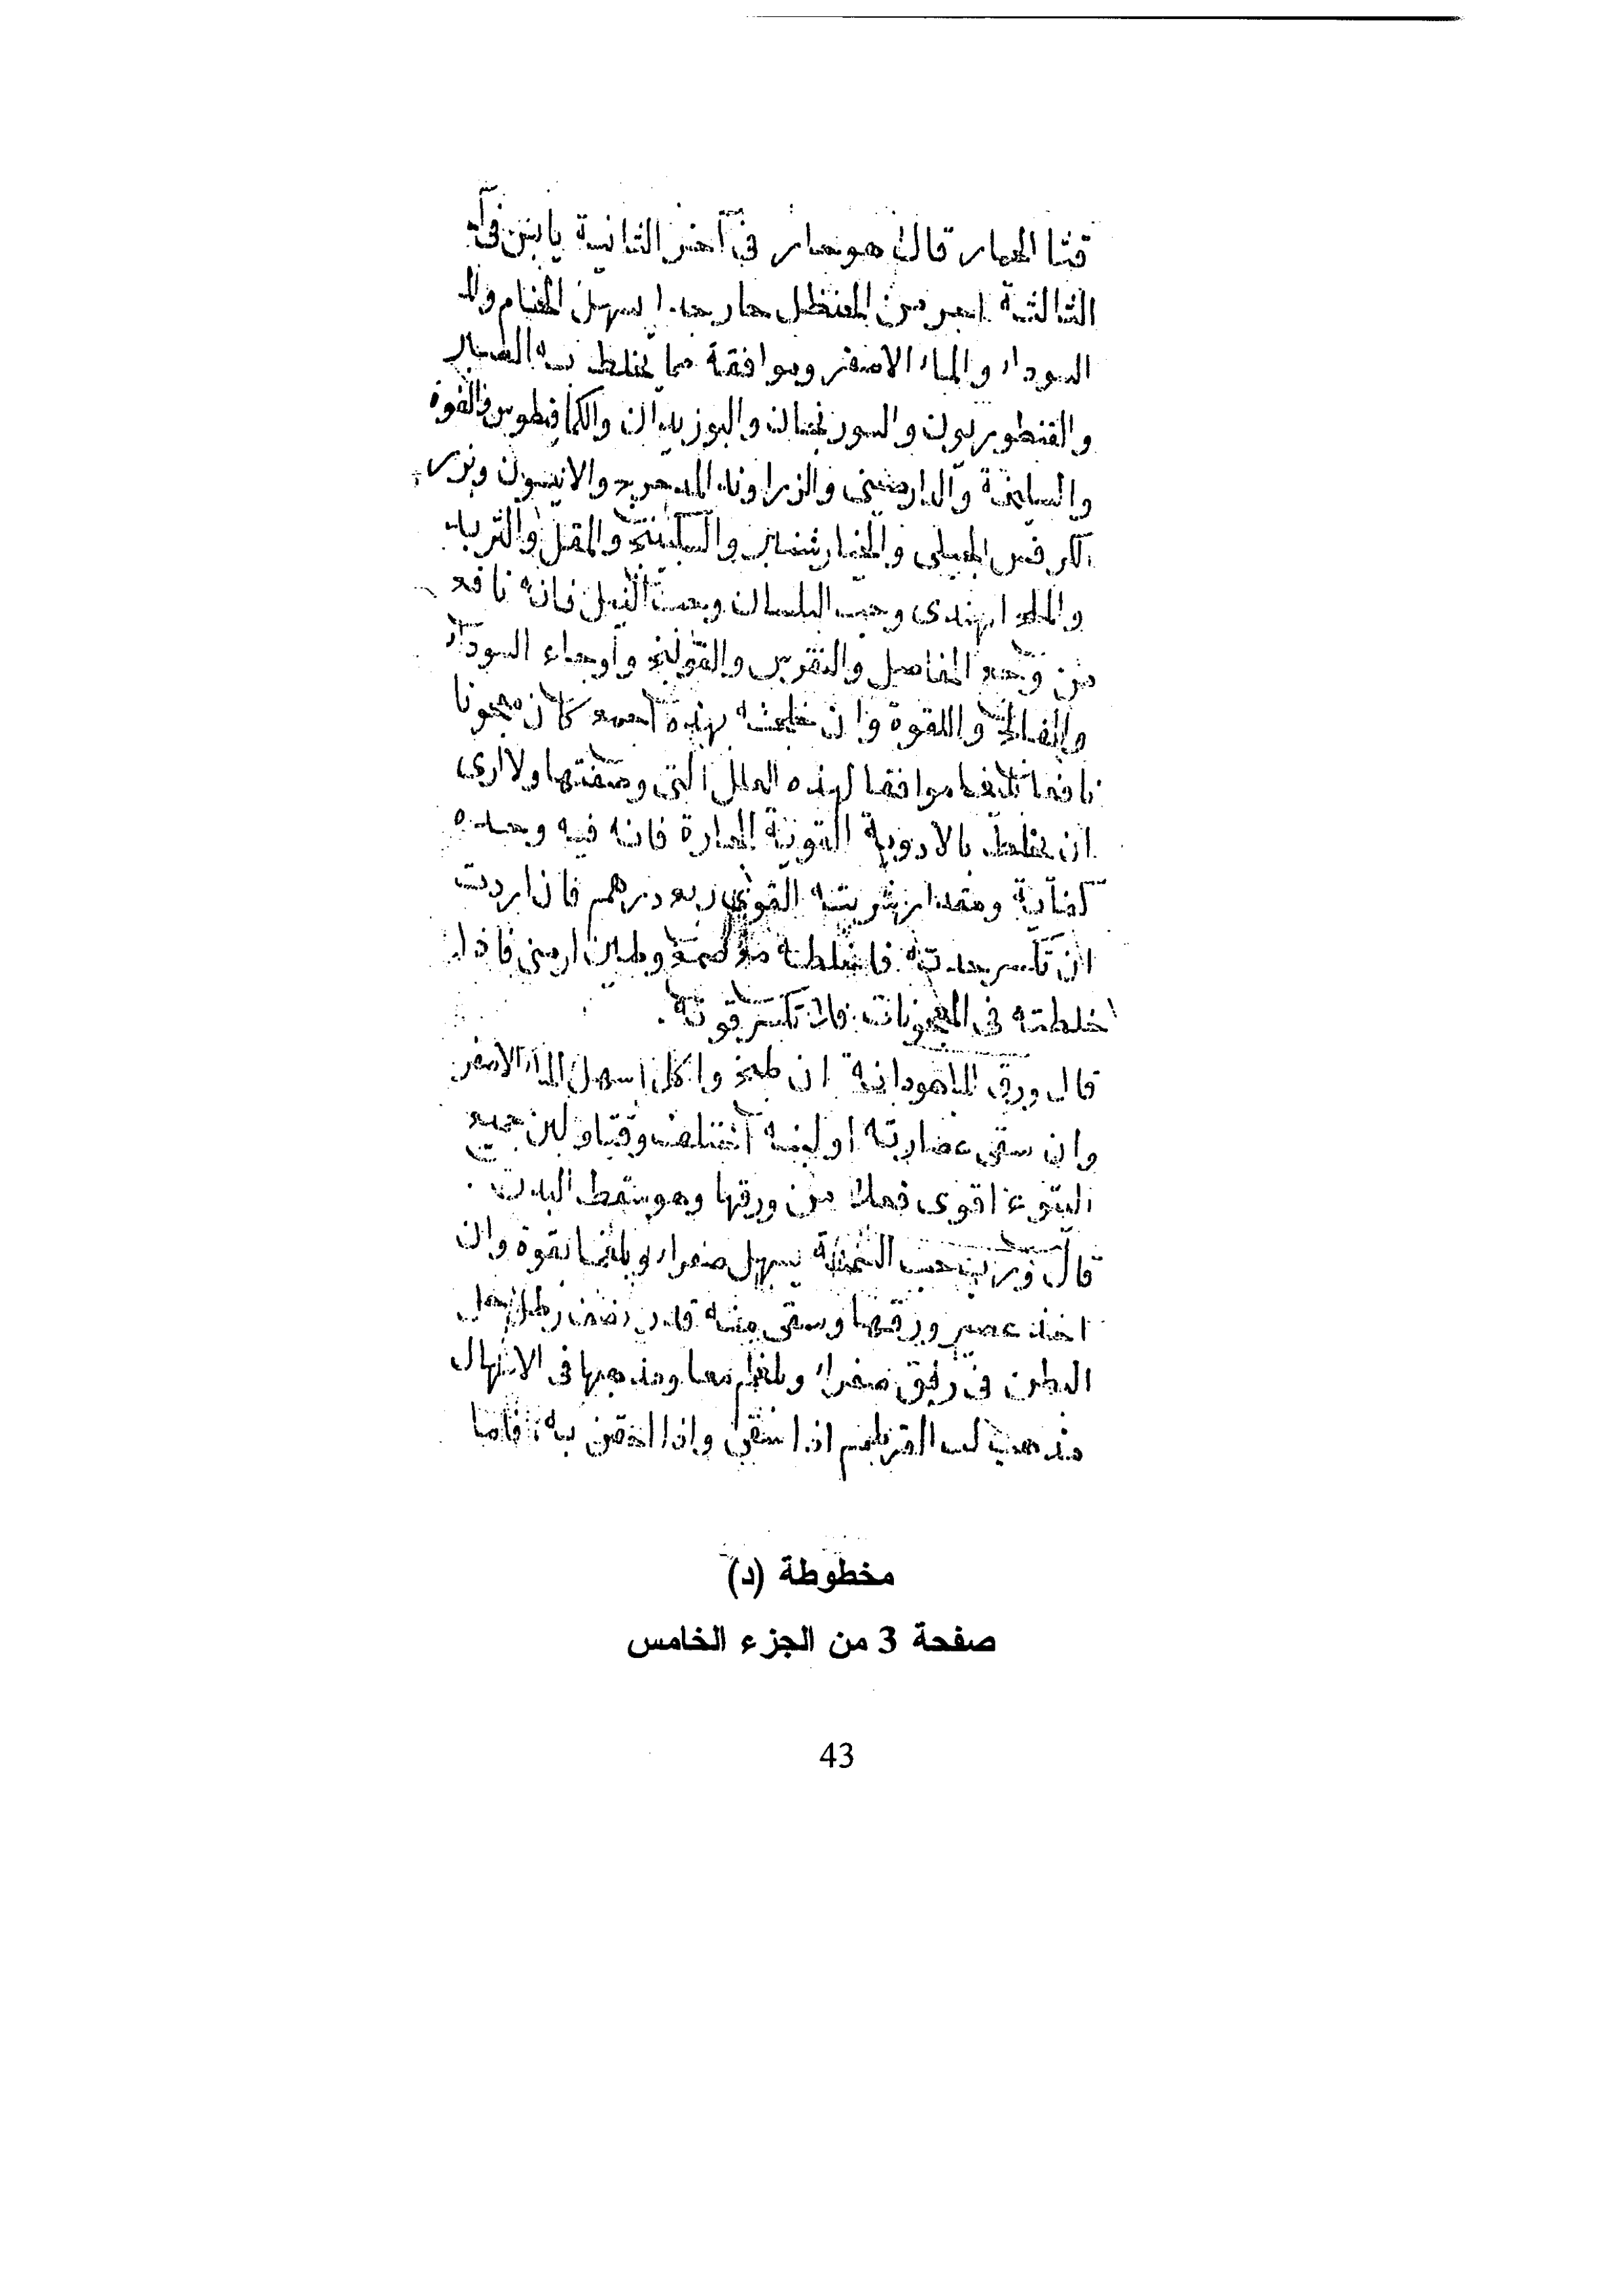 قثا الحمار قال هو حار في آخر الثانية يابس في
الثالثة احر من الحنظل حار جدا يسهل الخام
السودا والماء الاصفر وموافقة مما يخلط به الصبر
والقنطوريون والسورنجان والبوزيدان والكمافيطوس والفوة
والسليخة والدارصيني والزراوند المدحرج والانيسون وبزر
الكرفس الجبلي والخيارشنبر والسكبينج والمقل والتربد
والملح الهندى وحب البلسان وحب النيل فانه نافع
من وجع المفاصل والنقرس والقولنج واوجاع السوداء
والفالج واللقوة وان خلطته بهذه اجمع كان معجونا
نافعا موافقا لهذه العلل التى وصفتها ولا ارى
ان يخلط بالادوية القوية الحارة فانه فيه وحده
كفاية ومقدار شربته القوى ربع درهم فان اردت
ان تكسر حدته فاخلطه مع صمغ وطين ارمنى فاذا
خلطته فى المعجونات فلا تكسر قوته .
قال ورق الماهودانة ان طبخ واكل اسهل الماء الاصفر
وان سقى عصارته او لبنه اختلف وقيا ولبن جميع
اليتوع اقوى فعلا من ورقها وهو يسقط البدن .
قال حب السمنة يسهل صفراء وبلغما بقوة وان
اخذ عصير ورقها وسقى منه قدر نصف رطل حل
البطن فى رفق صفراء وبلغم معا ومذهبها فى الاسهال
مذهب لب القرطم اذا سقى واذا احتقن به، فاما
مخطوطة (د)
صفحة 3 من الجزء الخامس
43